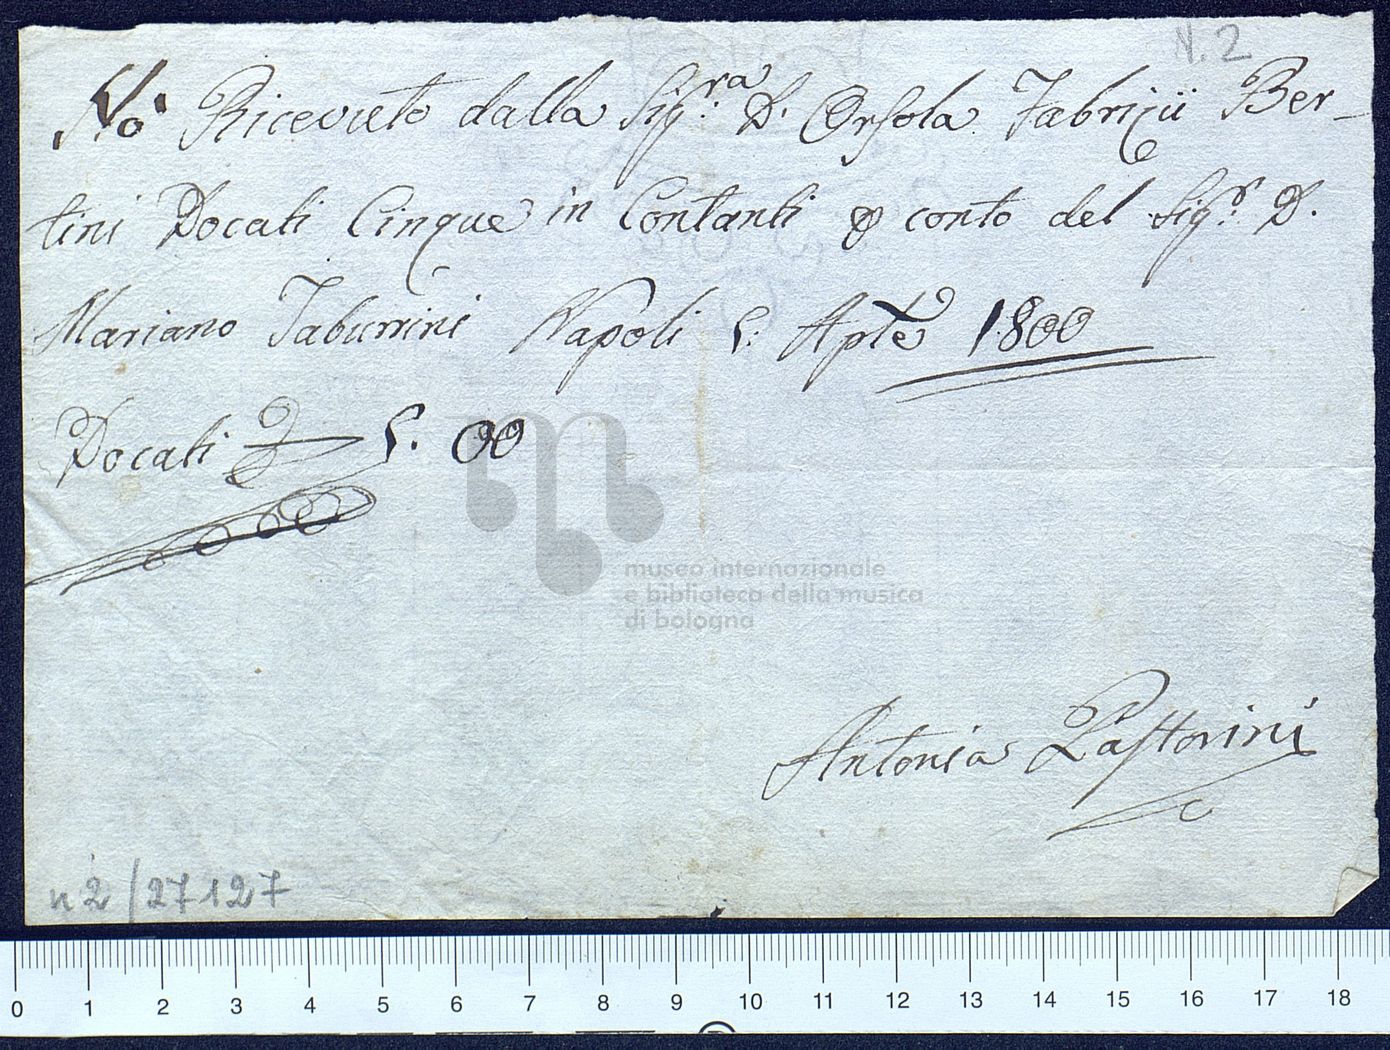 N. 2
Ho Ricevuto dalla Sig.ra D. Orsola Fabrizii Ber-
tini Docati Cinque in Contanti conto del Sig.r D.
Mariano Taburrini Napoli 5: Aple 1800
Docati 5. 00
museo internazionale
e biblioteca della musica
di bologna
Antonia Pastorini
n 2/27127
0 1 2 3 4 5 6 7 8 9 10 11 12 13 14 15 16 17 18